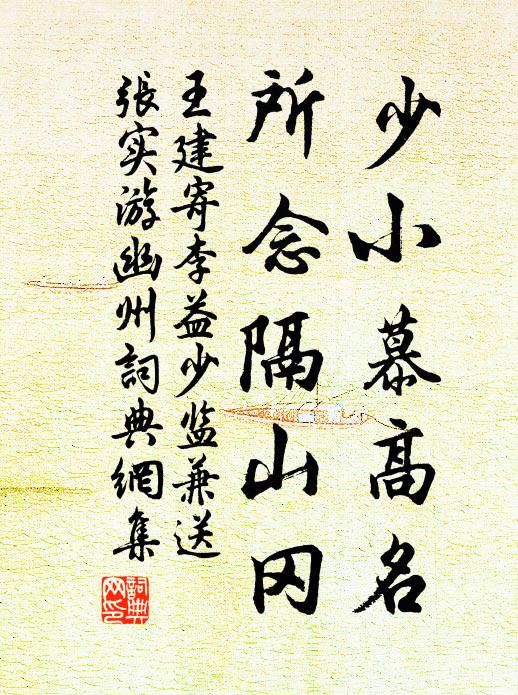 少小慕高名
所念隔山冈
王建寄李益少监兼送
張实游幽州詞典網集
詞典
网印